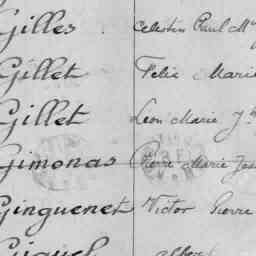 Gilles Celestin Paul M
Gillet Felix Marie
Gillet Leon Marie Jh
Gimonas Pierre Marie Jos
Ginguenet Victor Pierre
Albert